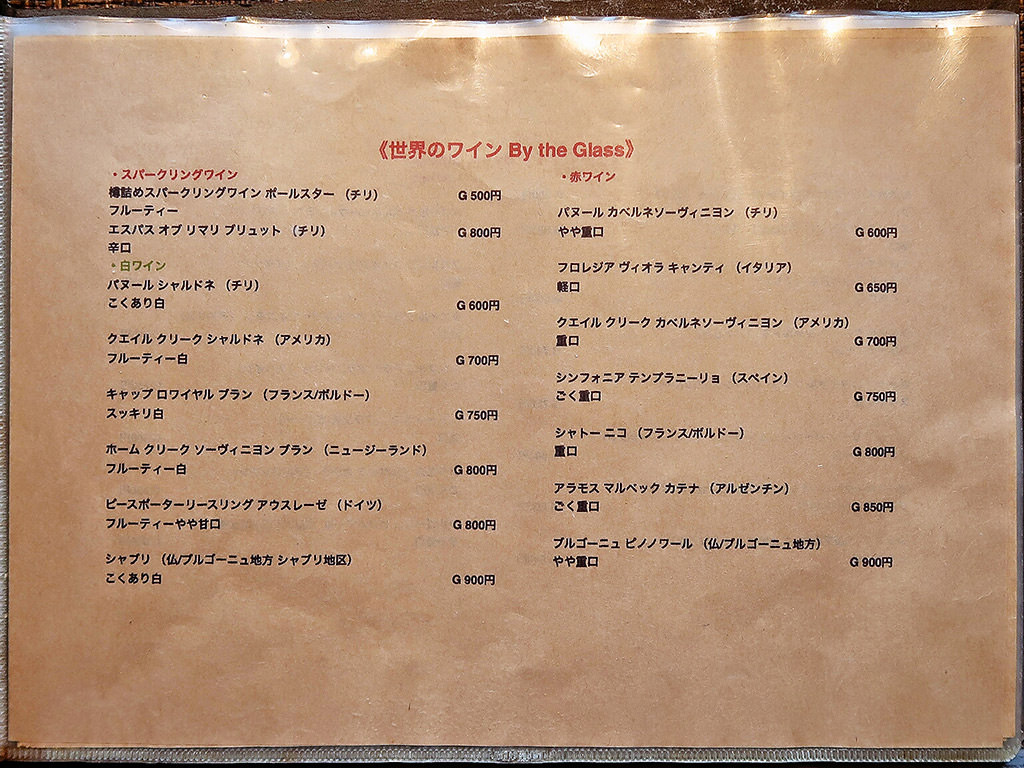 《世界のワイン By the Glass》
・スパークリングワイン
樽詰めスパークリングワイン ポールスター （チリ） G 500円
フルーティー
エスパス オブ リマリ ブリュット （チリ） G 800円
辛口
・白ワイン
パヌール シャルドネ （チリ）
こくあり白 G 600円
クエイル クリーク シャルドネ （アメリカ）
フルーティー白 G 700円
キャップ ロワイヤル ブラン （フランス/ボルドー）
スッキリ白 G 750円
ホーム クリーク ソーヴィニヨン ブラン （ニュージーランド）
フルーティー白 G 800円
ピースポーターリースリング アウスレーゼ （ドイツ）
フルーティーやや甘口 G 800円
シャブリ （仏/ブルゴーニュ地方 シャブリ地区）
こくあり白 G 900円
・赤ワイン
パヌール カベルネソーヴィニヨン （チリ）
やや重口 G 600円
フロレジア ヴィオラ キャンティ （イタリア）
軽口 G 650円
クエイル クリーク カベルネソーヴィニヨン （アメリカ）
重口 G 700円
シンフォニア テンプラニーリョ （スペイン）
ごく重口 G 750円
シャトー ニコ （フランス/ボルドー）
重口 G 800円
アラモス マルベック カテナ （アルゼンチン）
ごく重口 G 850円
ブルゴーニュ ピノノワール （仏/ブルゴーニュ地方）
やや重口 G 900円